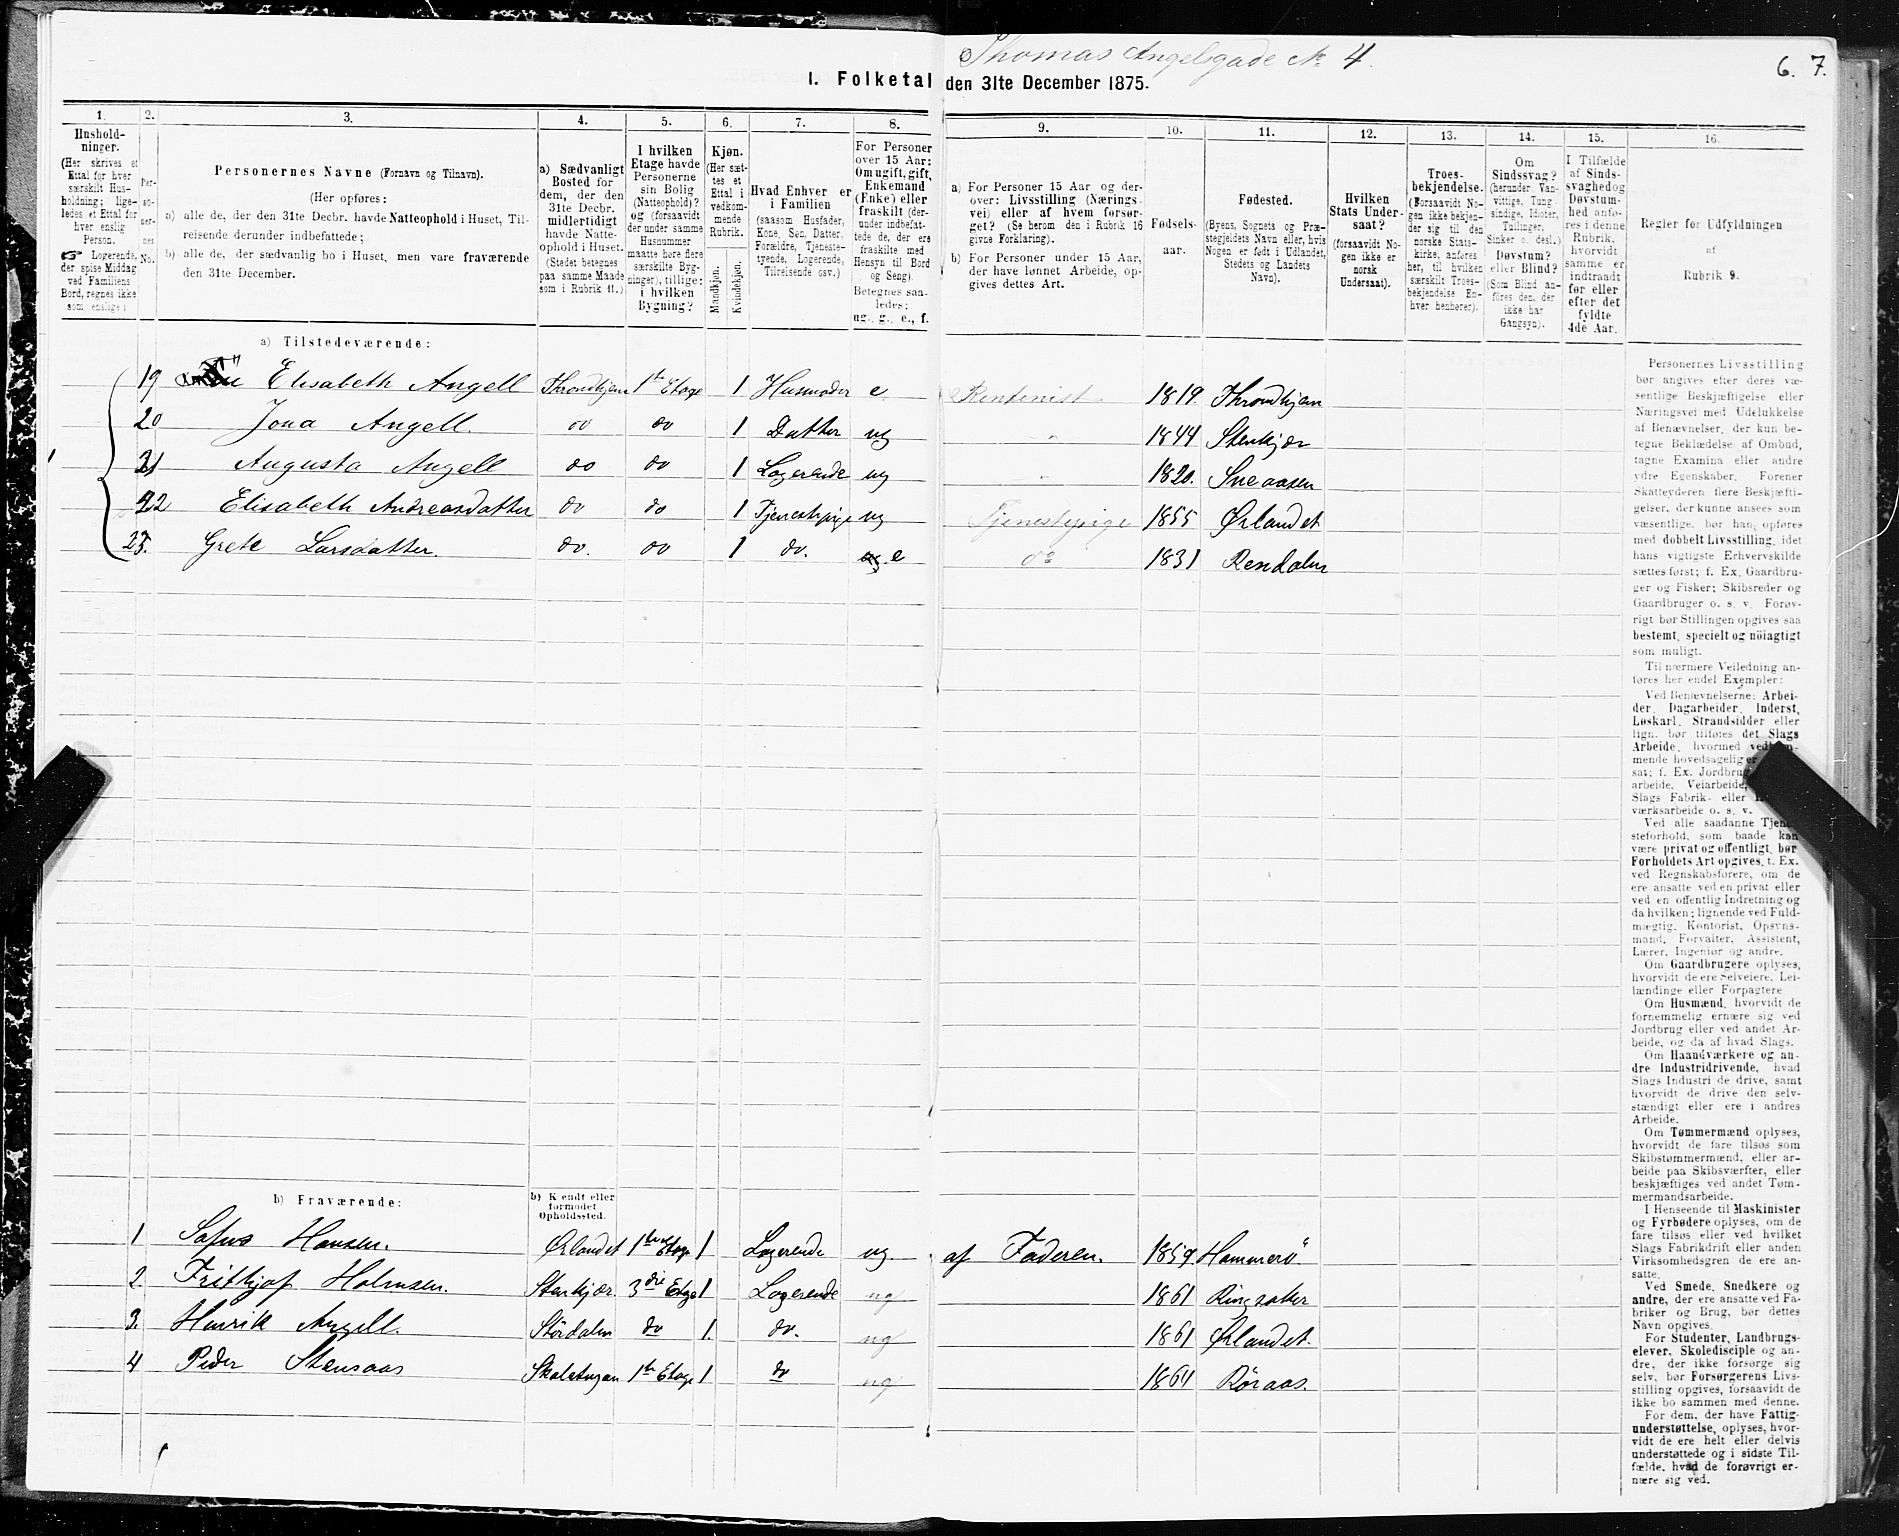 Thomas Angelsgade No 4.
6. 7.
I. Folketal den 31te December 1875.
1. 2. 3. 4. 5. 6. 7. 8. 9. 10. 11. 12. 13. 14. 15. 16.
Hushold-
ninger.
(Her skrives et
Ettal for hver
særskilt Hus-
holdning; lige-
ledes et Ettal for
hver enslig
Person.
☞ Logerende,
der spise Middag
ved Familiens
Bord, regnes ikke
som enslige)
Per-
so-
ner-
nes
No.
Personernes Navne (Fornavn og Tilnavn).
(Her opføres:
a) alle de, der den 31te Decbr. havde Natteophold i Huset, Til-
reisende derunder indbefattede;
b) alle de, der sædvanlig bo i Huset, men vare fraværende
den 31te December.
a) Sædvanligt
Bosted for
dem, der den
31te Decbr.
midlertidigt
havde Natte-
ophold i Huset.
(Stedet betegnes
paa samme Maade
som i Rubrik 11.)
I hvilken
Etage havde
Personerne
sin Bolig
(Natteophold)?
og (forsaavidt
der under samme
Husnummer
maatte høre flere
særskilte Byg-
ninger), tillige:
i hvilken
Bygning?
Kjøn.
(Her sæt-
tes et
Ettal i
vedkom-
mende
Rubrik.
Mandkjøn.
Kvindekjøn.
Hvad Enhver er
i Familien
(saasom Husfader,
Kone, Søn, Datter,
Forældre, Tjeneste-
tyende, Logerende,
Tilreisende osv.)
For Personer
over 15 Aar:
Om ugift, gift,
Enkemand
(Enke) eller
fraskilt (der-
under indbefat-
tede de, der ere
fraskilte med
Hensyn til Bord
og Seng)
Betegnes saa-
ledes:
ug., g., e., f.
a) For Personer 15 Aar og der-
over: Livsstilling (Nærings-
vei) eller af hvem forsør-
get? (Se herom den i Rubrik 16
givne Forklaring).
b) For Personer under 15 Aar,
der have lønnet Arbeide, op-
gives dettes Art.
Fødsels-
aar.
Fødested.
(Byens, Sognets og Præ-
stegjeldets Navn eller, hvis
Nogen er født i Udlandet,
Stedets og Landets
Navn).
Hvilken
Stats Under-
saat?
(forsaavidt No-
gen ikke er
norsk
Undersaat).
Troes-
bekjendelse.
(Forsaavidt No-
gen ikke bekjen-
der sig til den
norske Stats-
kirke, anføres
her, til hvilken
særskilt Troes-
bekjendelse En-
hver henhører).
Om
Sindssvag?
(herunder Van-
vittige, Tung-
sindige, Idioter,
Tullinger,
Sinker o. desl.)
Døvstum?
eller Blind?
(Som Blind an-
føres den, der
ikke har
Gangsyn).
I Tilfælde
af Sinds-
svaghed og
Døvstum-
hed anfø-
res i denne
Rubrik,
hvorvidt
samme er
indtraadt
før eller
efter det
fyldte
4de Aar.
Regler for Udfyldningen
af
Rubrik 9.
a) Tilstedeværende:
19 Elisabeth Angell Throndhjem 1te Etage 1 Husmoder e. Rentenist 1819. Throndhjem
20 Jona Angell. do do 1 Datter ug " 1844 Stenkjær
21 Augusta Angell do do 1 Logerende ug " 1820. Sneaasen
22 Elisabeth Andreasdatter do do 1 Tjenestepige ug Tjenestepige 1855 Ørlandet
23. Grete Larsdatter. do. do 1 do. e do 1831 Rendalen
b) Fraværende:
b) Kjendt eller
formodet
Opholdssted.
1 Sofus Hansen. Ørlandet 1te Etage 1 Logerende ug. af Faderen. 1859 Hammerö
2. Frithjof Holmsen. Stenkjær. 3die Etage 1 Logerende ug 1861 Ringsaker
3. Henrik Angell. Stördalen do 1. do. ug 1861 Ørlandet.
4 Peder Stensaas Skalstugan 1te Etage 1 do ug 1864 Röraas.
Personernes Livsstilling
bør angives efter deres væ-
sentlige Beskjæftigelse eller
Næringsvei med Udelukkelse
af Benævnelser, der kun be-
tegne Beklædelse af Ombud,
tagne Examina eller andre
ydre Egenskaber. Forener
Skatteyderen flere Beskjæfti-
gelser, der kunne ansees som
væsentlige, bør han opføres
med dobbelt Livsstilling, idet
hans vigtigste Erhvervskilde
sættes først; f. Ex. Gaardbru-
ger og Fisker; Skibsreder og
Gaardbruger o. s. v. Forøv-
rigt bør Stillingen opgives saa
bestemt, specielt og nöiagtigt
som muligt.
Til nærmere Veiledning an-
føres her endel Exempler:
Ved Benævnelserne: Arbei-
der, Dagarbeider, Inderst,
Løskarl, Strandsidder eller
lign. bør tilføies det Slags
Arbeide, hvormed vedkom-
mende hovedsagelig er
sat; f. Ex. Jordbrug
arbeide, Veiarbeide,
Slags Fabrik- eller
værksarbeide o. s. v.
Ved alle saadanne Tjene-
steforhold, som baade kan
være privat og offentligt, bør
Forholdets Art opgives, t. Ex.
ved Regnskabsførere, om de
ere ansatte ved en privat eller
ved en offentlig Indretning og
da hvilken; lignende ved Fuld-
mægtig, Kontorist, Opsyns-
mand, Forvalter, Assistent,
Lærer, Ingeniør og andre.
Om Gaardbrugere oplyses,
hvorvidt de ere Selveiere, Lei-
lændinge eller Forpagtere
Om Husmænd, hvorvidt de
fornemmelig ernære sig ved
Jordbrug eller ved andet Ar-
beide, og da af hvad Slags.
Om Haandværkere og an-
dre Industridrivende, hvad
Slags Industri de drive, samt
hvorvidt de drive den selv-
stændigt eller ere i andres
Arbeide.
Om Tømmermænd oplyses,
hvorvidt de fare tilsøs som
Skibstømmermænd, eller ar-
beide paa Skibsværfter, eller
beskjæftiges ved andet Tøm-
mermandsarbeide.
I Henseende til Maskinister
og Fyrbødere oplyses, om de
fare tilsøs eller ved hvilket
Slags Fabrikdrift eller anden
Virksomhedsgren de ere an-
satte.
Ved Smede, Snedkere og
andre, der ere ansatte ved Fa-
briker og Brug, bør dettes
Navn opgives.
For Studenter, Landbrugs-
elever, Skoledisciple og an-
dre, der ikke forsørge sig
selv, bør Forsørgerens Livs-
stilling opgives, forsaavidt de
ikke bo sammen med denne.
For dem, der have Fattig-
understøttelse, oplyses, hvor-
vidt de ere helt eller delvis
understøttede og i sidste Til-
fælde, hvad de forøvrigt er-
nære sig ved.